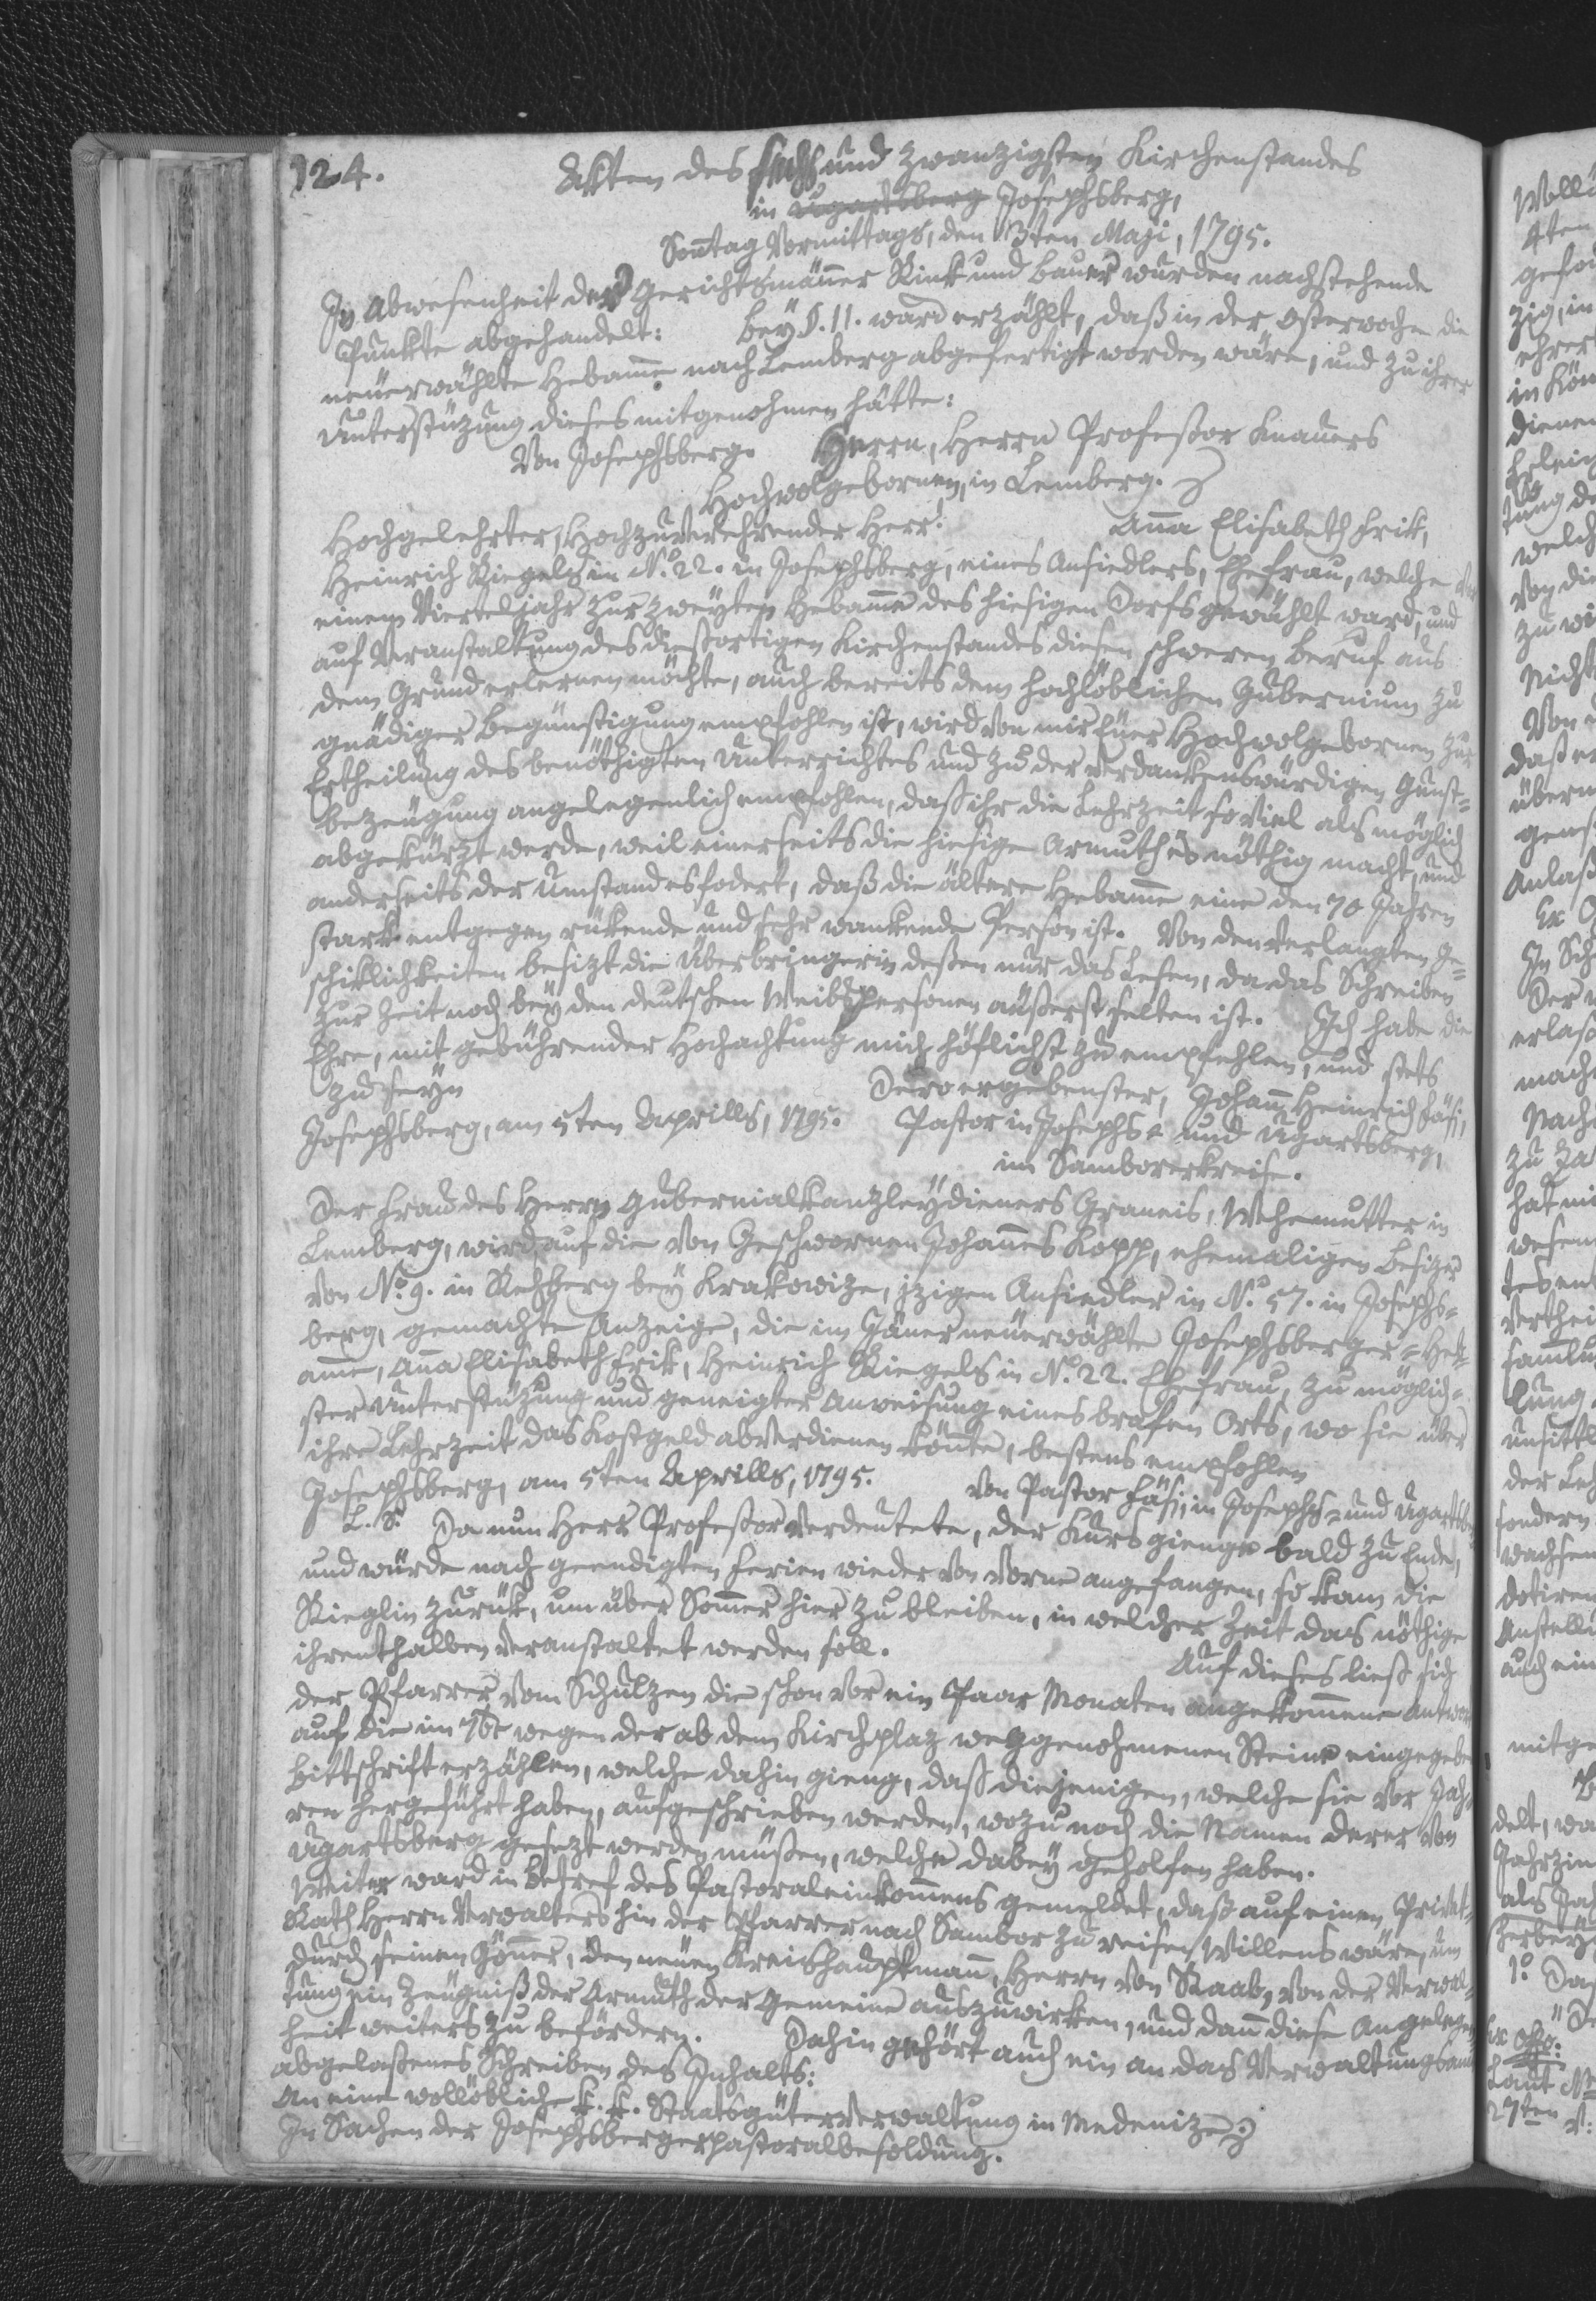 124.
Akten des sechsundzwanzigsten Kirchenstandes
in Ugartsberg Josephsberg,
Sonntag Vormittags, den 3ten Maji, 1795.
In Abwesenheit der Gerichtsmäner Rink und Bauer wurden nachstehende
Punkte abgehandelt: Bey §. 11. ward erzählt, daß in der Osterwoche die
neuerwählte Hebame nach Lemberg abgefertigt worden wäre, und zu ihrer
Unterstüzung dieses mitgenohmen hätte:
Von Josephsberg. Herrn, Herrn Profeßor Knauers
Hochwolgebornen, in Lemberg.
Hochgelehrter, Hochzuverehrender Herr! Anna Elisabeth Frik,
Heinrich Riegels in No. 22. in Josephsberg, eines Ansiedlers, Ehefrau, welche vor
einem Vierteljahr zur zweyten Hebame des hiesigen Dorfs gewählt ward, und
auf Veranstaltung des dießortigen Kirchenstandes diesen schweren Beruf aus
dem Grund erlernen möchte, auch bereits dem hochlöblichen Gubernium zu
gnädiger Begünstigung empfohlen ist, wird von mir Euer Hochwolgebornen zur
Ertheilung des benöthigten Unterrichtes und zu der verdankenswürdigen Gunst=
bezeugung angelegenlich empfohlen, daß ihr die Lehrzeit soviel als möglich
abgekürzt werde, weil einerseits die hiesige Armuth es nöthig macht, und
anderseits der Umstand es fodert, daß die ältere Hebame eine den 70 Jahren
stark entgegen rükende und sehr wankende Person ist. Von den verlangten Ge=
schiklichkeiten besizt die Überbringerin deßen nur das Lesen, da das Schreiben
zur Zeit noch bey den deutschen Weibspersonen äußerst selten ist. Ich habe die
Ehre, mit gebührender Hochachtung mich höflichst zu empfehlen, und stets
zu seyn Dero ergebenster, Johann Heinrich Fäsi,
Josephsberg, am 5ten Aprills, 1795. Pastor in Josephs= und Ugartsberg,
im Samborerkreise.
Der Frau des Herrn Gubernialkanzleydieners Graneis, Wehemutter in
Lemberg, wird auf die von Geschwornen Johannes Kopp, ehemaligen Besizer
von No. 9. in Rehberg bey Krakowize, izigen Ansiedler in No. 57. in Josephs=
berg, gemachte Anzeige, die im Jäner neuerwählte Josephsberger=Heb=
ame, Anna Elisabeth Frik, Heinrich Riegels in No. 22. Ehefrau, zu möglich=
ster Unterstüzung und geneigter Anweisung eines brafen Orts, wo sie über
ihre Lehrzeit das Kostgeld abverdienen könnte, bestens empfohlen
Josephsberg, am 5ten Aprills, 1795. von Pastor Fäsi, in Josephs= und Ugartsberg
L. S. Da nun Herr Profeßor verdeutete, der Kurs gienge bald zu Ende,
und würde nach geendigten Ferien wieder von vorne angefangen, so kam die
Rieglin zurük, um über Somer hier zu bleiben, in welcher Zeit das nöthige
ihrenthalben veranstaltet werden soll. Auf dieses ließ sich
der Pfarrer vom Schulzen die schon vor ein Paar Monaten angekommene Antwort
auf die im 7bt wegen der ab dem Kirchplaz weggenohmenen Steine eingegebene
Bittschrift erzählen, welche dahin gieng, daß diejenigen, welche sie vor Jah=
ren hergeführt haben, aufgeschrieben werden, wozu noch die Namen derer von
Ugartsberg gesezt werden müßen, welche dabey geholfen haben.
Weiter ward in Betref des Pastoraleinkommens gemeldet, daß auf einen Privat=
Rath Herrn Verwalters hin der Pfarrer nach Sambor zu reisen Willens wäre, um
durch seinen Gönner, den neuen Kreishauptmann, Herrn von Raab, von der Verwal=
tung ein Zeugniß der Armuth der Gemeine auszuwirken, und dann diese Angelegen=
heit weiters zu befördern. Dahin gehört auch ein an das Verwaltungsamt
abgelaßenes Schreiben des Inhalts:
An eine wollöbliche k. k. Staatsgüterverwaltung in Medenize
In Sachen der Josephsbergerpastoralbesoldung.